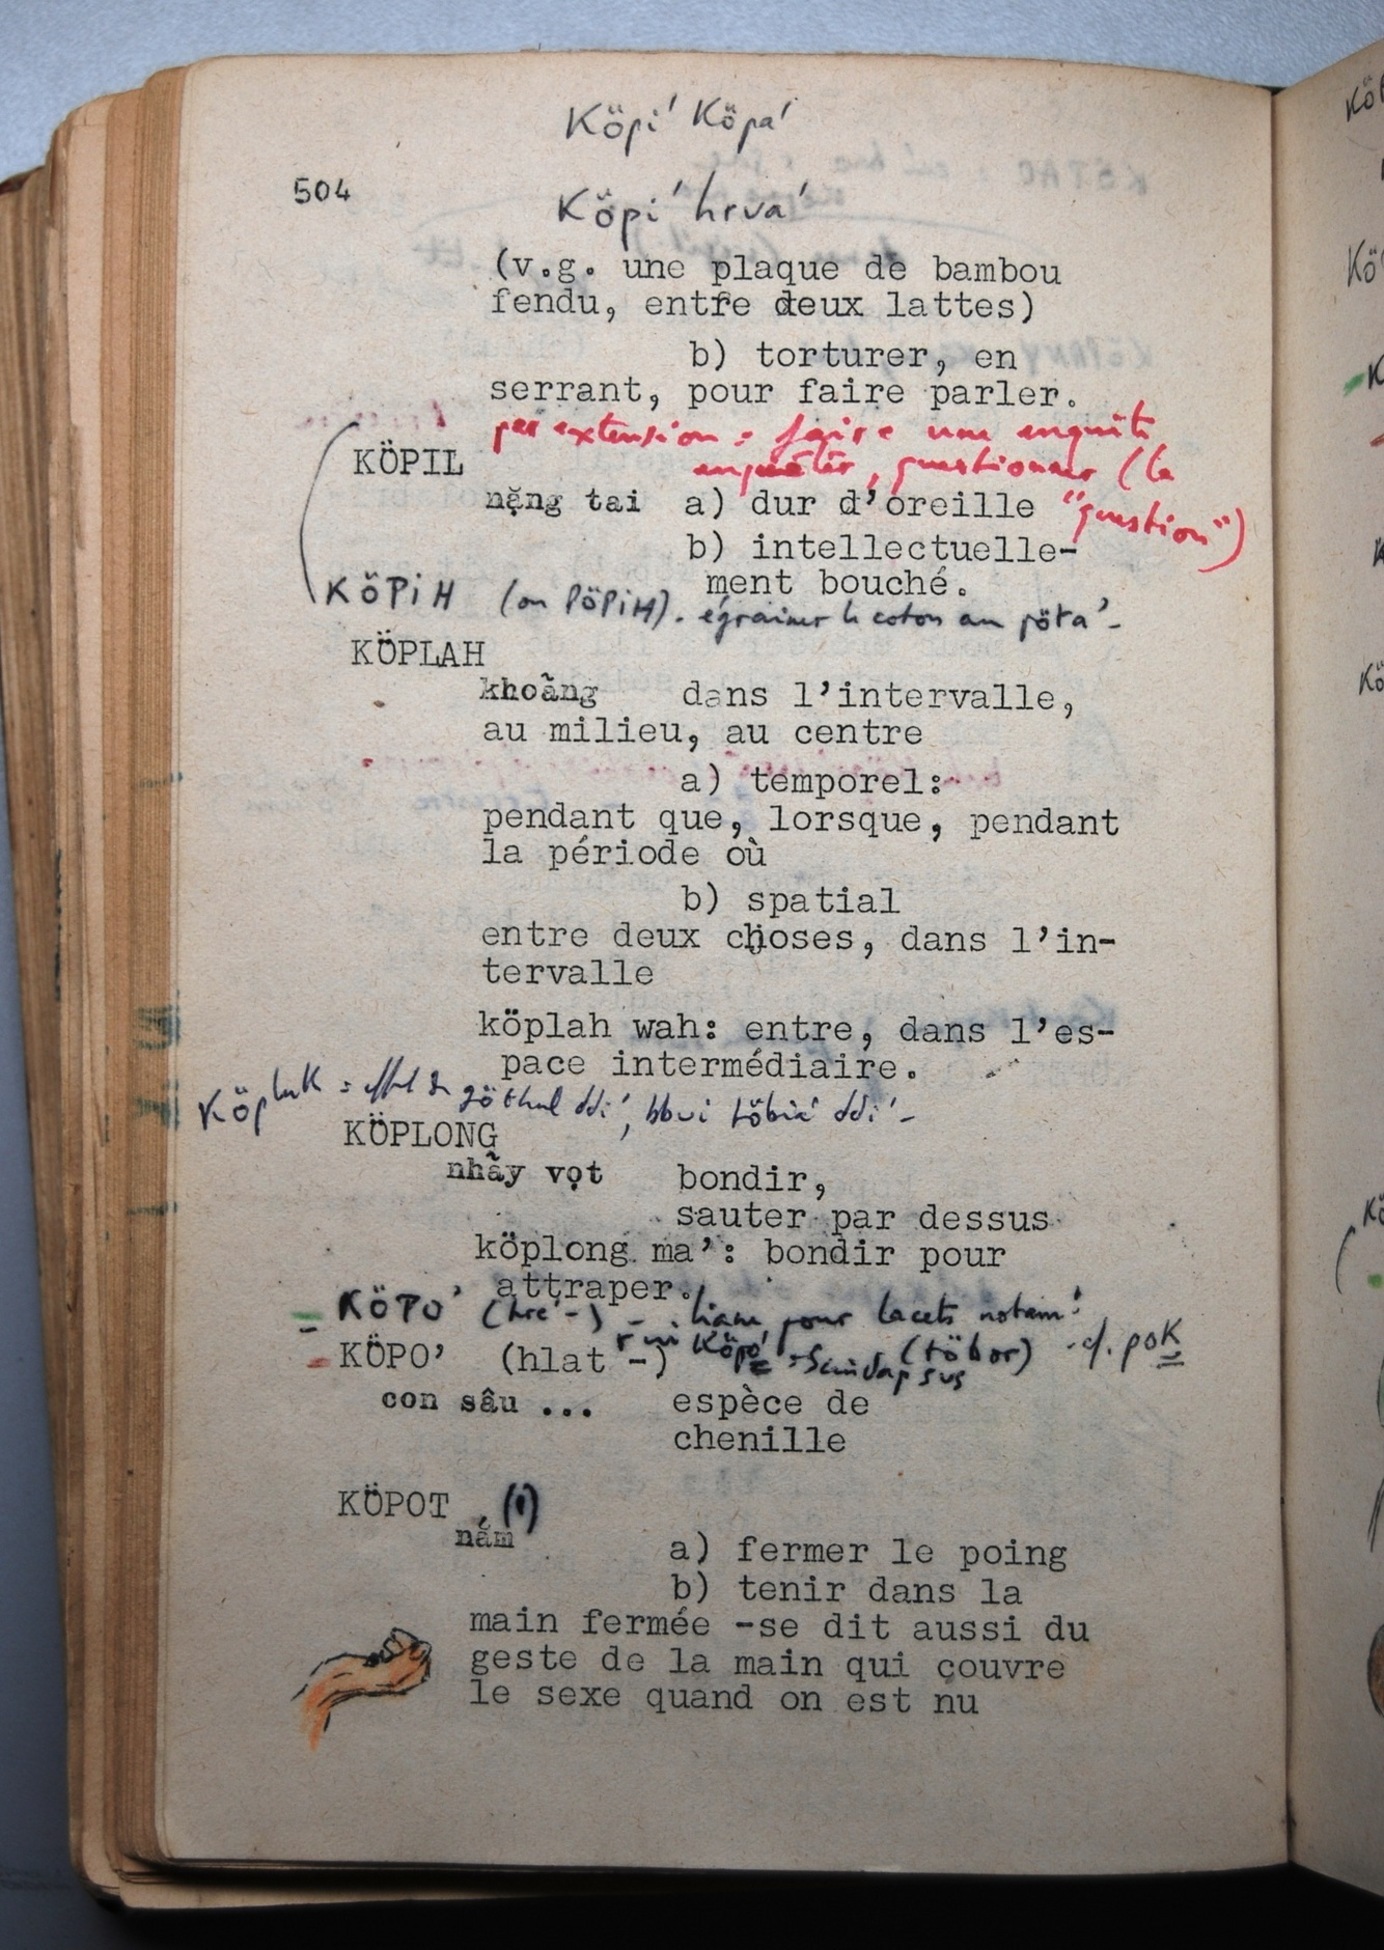 Köpi' Köpa'
504
Köpi' hrva'
(v.g. une plaque de bambou
fendu, entre deux lattes)
b) torturer, en
serrant, pour faire parler.
par extension = faire une enquête
KÖPIL
enquêter, questionner (la
nặng tai a) dur d'oreille "question")
b) intellectuelle-
ment bouché.
KÖPiH (ou PÖPiH). égrainer le coton au pöta'-
KÖPLAH
khoảng dans l'intervalle,
au milieu, au centre
a) temporel:
pendant que, lorsque, pendant
la période où
b) spatial
entre deux choses, dans l'in-
tervalle
köplah wah: entre, dans l'es-
pace intermédiaire.
Köpluk = ddi',  ddi'-
KÖPLONG
nhẩy vọt bondir,
sauter par dessus
köplong ma': bondir pour
attraper.
KÖPO' (hre'-) - liane pour lacets notamt
KÖPO' (hlat -) Köpo' = Scindapsus (töbor) cf. pok
con sâu ... espèce de
chenille
KÖPOT (i)
nắm
a) fermer le poing
b) tenir dans la
main fermée -se dit aussi du
geste de la main qui couvre
le sexe quand on est nu